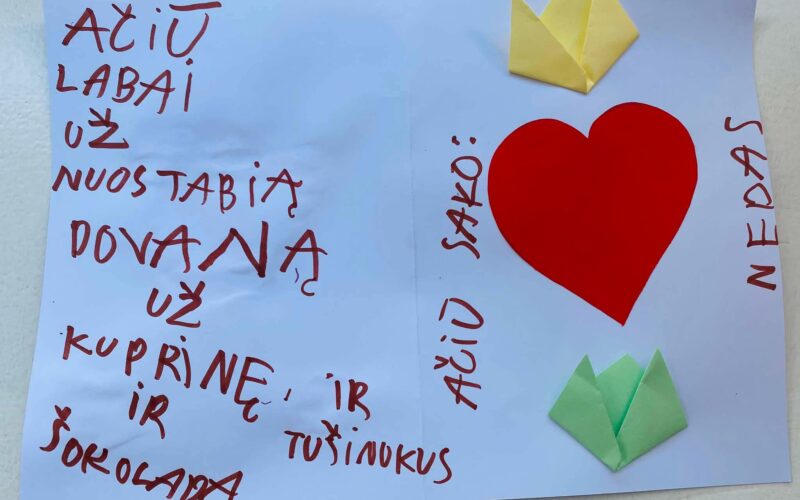 AČIŪ
LABAI
UŽ
NUOSTABIĄ
DOVANĄ
UŽ
KUPRINĘ, IR
IR TUŠINUKUS
ŠOKOLADĄ
AČIŪ SAKO:
NEDAS